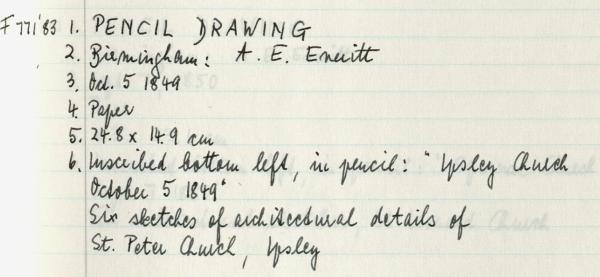 F771'83 1. PENCIL DRAWING
2. Birmingham: A. E. Everitt
3. Oct. 5 1849
4. Paper
5. 24.8 x 14.9 cm
6. Inscribed bottom left, in pencil: "Ipsley Church
October 5 1849"
Six sketches of architectural details of
St. Peter Church, Ipsley